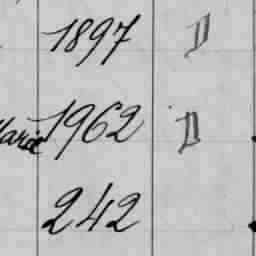 1897 D
Marie 1962 D
242